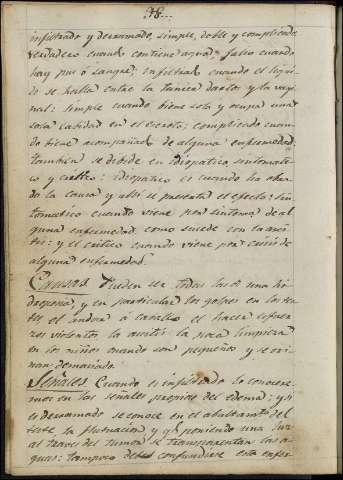 78...
infiltrado y derramado, simple, doble y complicado
verdadero cuando contiene agua, falso cuando
hay pus o sangre; infiltrado cuando el liqui-
do se halla entre la tunica dartos y la vagi-
nal: simple cuando viene sola y ocupa una
sola cabidad en el escroto; complicado cuan-
do viene acompañado de alguna enfermedad;
tambien se debide en Idiopatico sintomati-
co y critico: Idiopatico es cuando ha obra-
do la causa y alli se presenta el efecto; Sin-
tomatico cuando viene por sintoma de al-
guna enfermedad, como sucede con la asci-
tis: y el critico cuando viene por crisis de
alguna enfermedad.
Causas. Pueden ser todas las de una hi-
dropesia, y en particular los golpes en los testes
el andar á caballo el hacer esfuer-
zos violentos la ascitis la poca limpieza
en los niños cuando son pequeños y se ori-
nan demasiado.
Señales. Cuando es infiltrado lo conocere-
mos en las señales propias del edema; y si
es derramado se conoce en el abultamto del
teste la flutuacion y qe poniendo una luz
al traves del tumor se transparentan las a-
guas: tampoco debe confundirse esta enfer